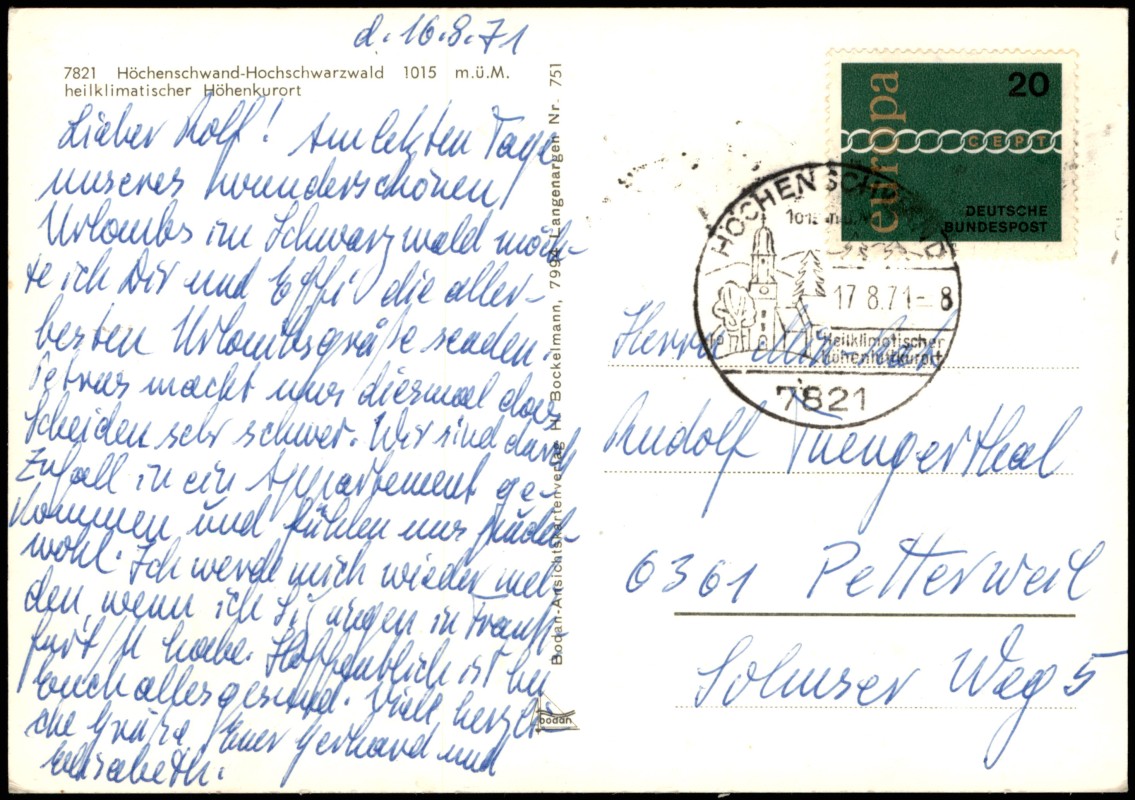 d. 16.8.71
7821 Höchenschwand-Hochschwarzwald 1015 m.ü.M.
heilklimatischer Höhenkurort
Lieber Rolf! Am letzten Tage
unseres wunderschönen
Urlaubs im Schwarzwald möch-
te ich Dir und Effi die aller-
besten Urlaubsgrüße senden.
macht uns diesmal das
Scheiden sehr schwer. Wir sind durch
Zufall in ein Appartement ge-
kommen und fühlen uns pudel-
wohl. Ich werde mich wieder mel-
den, wenn ich Sitzungen in Frank-
furt/M habe. Hoffentlich ist bei
Euch alles gesund. Viele herzli-
che Grüße Euer Gerhard und
Elisabeth.
Bodan-Ansichtskartenverlag H. Bockelmann, 7994 Langenargen Nr. 751
bodan
europa
20
CEPT
DEUTSCHE
BUNDESPOST
HÖCHENSCHWAND
1015 m.ü.M.
17.8.71-8
Heilklimatischer
Höhenluftkurort
7821
Herrn
Rudolf
6361 Petterweil
Solmser Weg 5